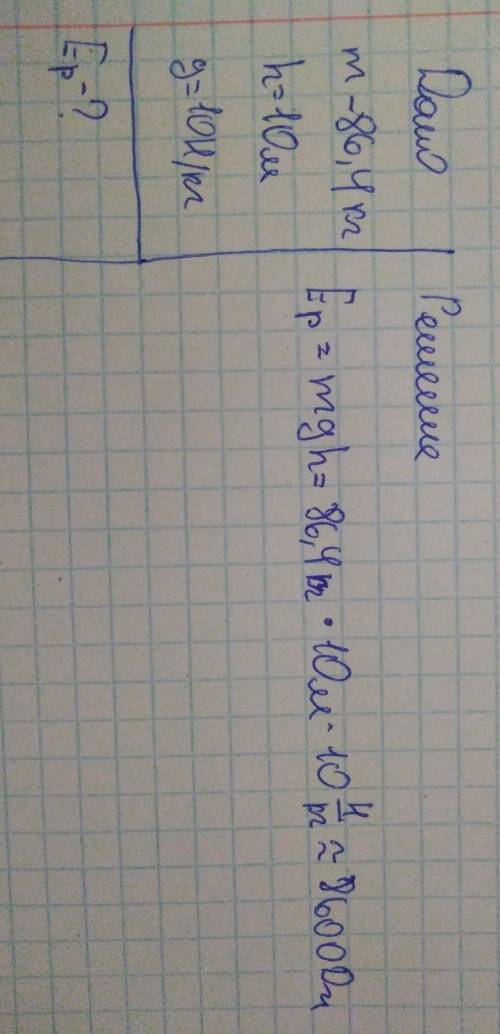 Дано
m - 86,4 кг
h = 10м
g = 10Н/кг
Eр - ?
Решение
Eр = mgh = 86,4 кг · 10м · 10 Н/кг ≈ 8600 Дж